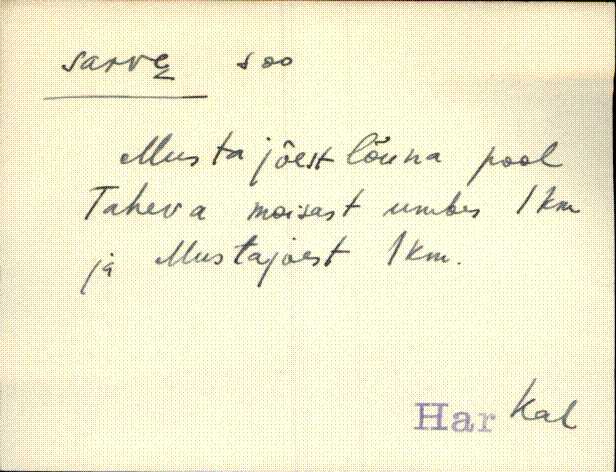 sarve soo
Mustajõest lõuna pool
Taheva moisast umbes 1 km
ja Mustajoest 1 km.
Har Kal